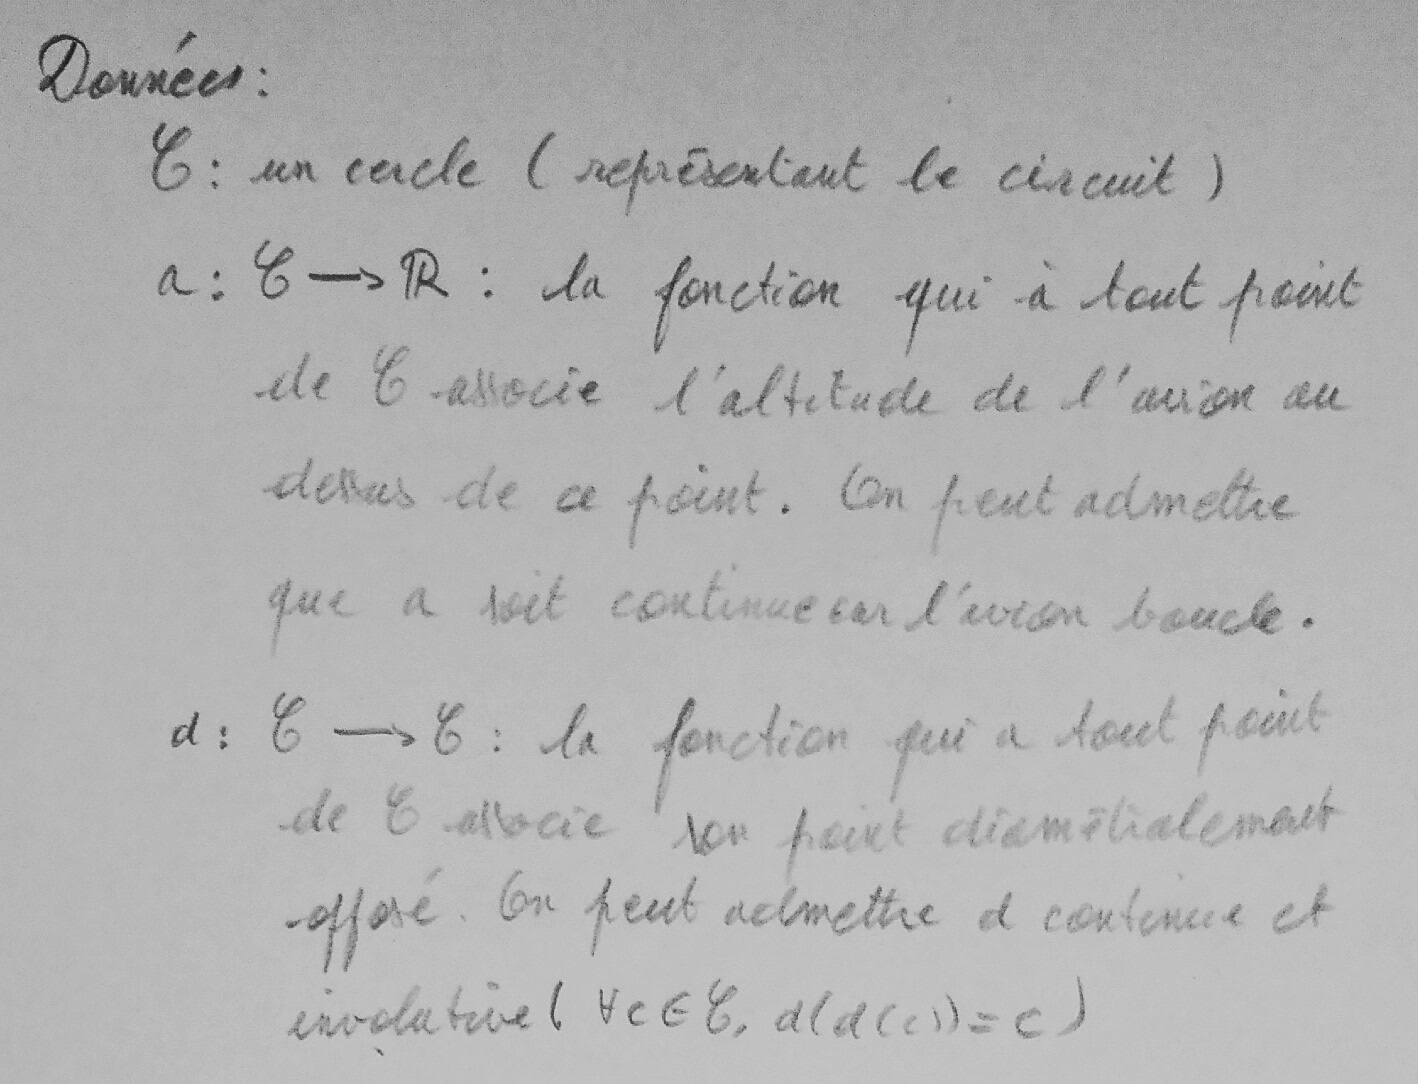 Données :
𝒞 : un cercle ( représentant le circuit )
a : 𝒞 → ℝ : la fonction qui à tout point
de 𝒞 associe l'altitude de l'avion au
dessus de ce point. On peut admettre
que a soit continue car l'avion boucle.
d : 𝒞 → 𝒞 : la fonction qui a tout point
de 𝒞 associe son point diamétralement
opposé. On peut admettre d continue et
involutive ( ∀c ∈ 𝒞, d(d(c)) = c )